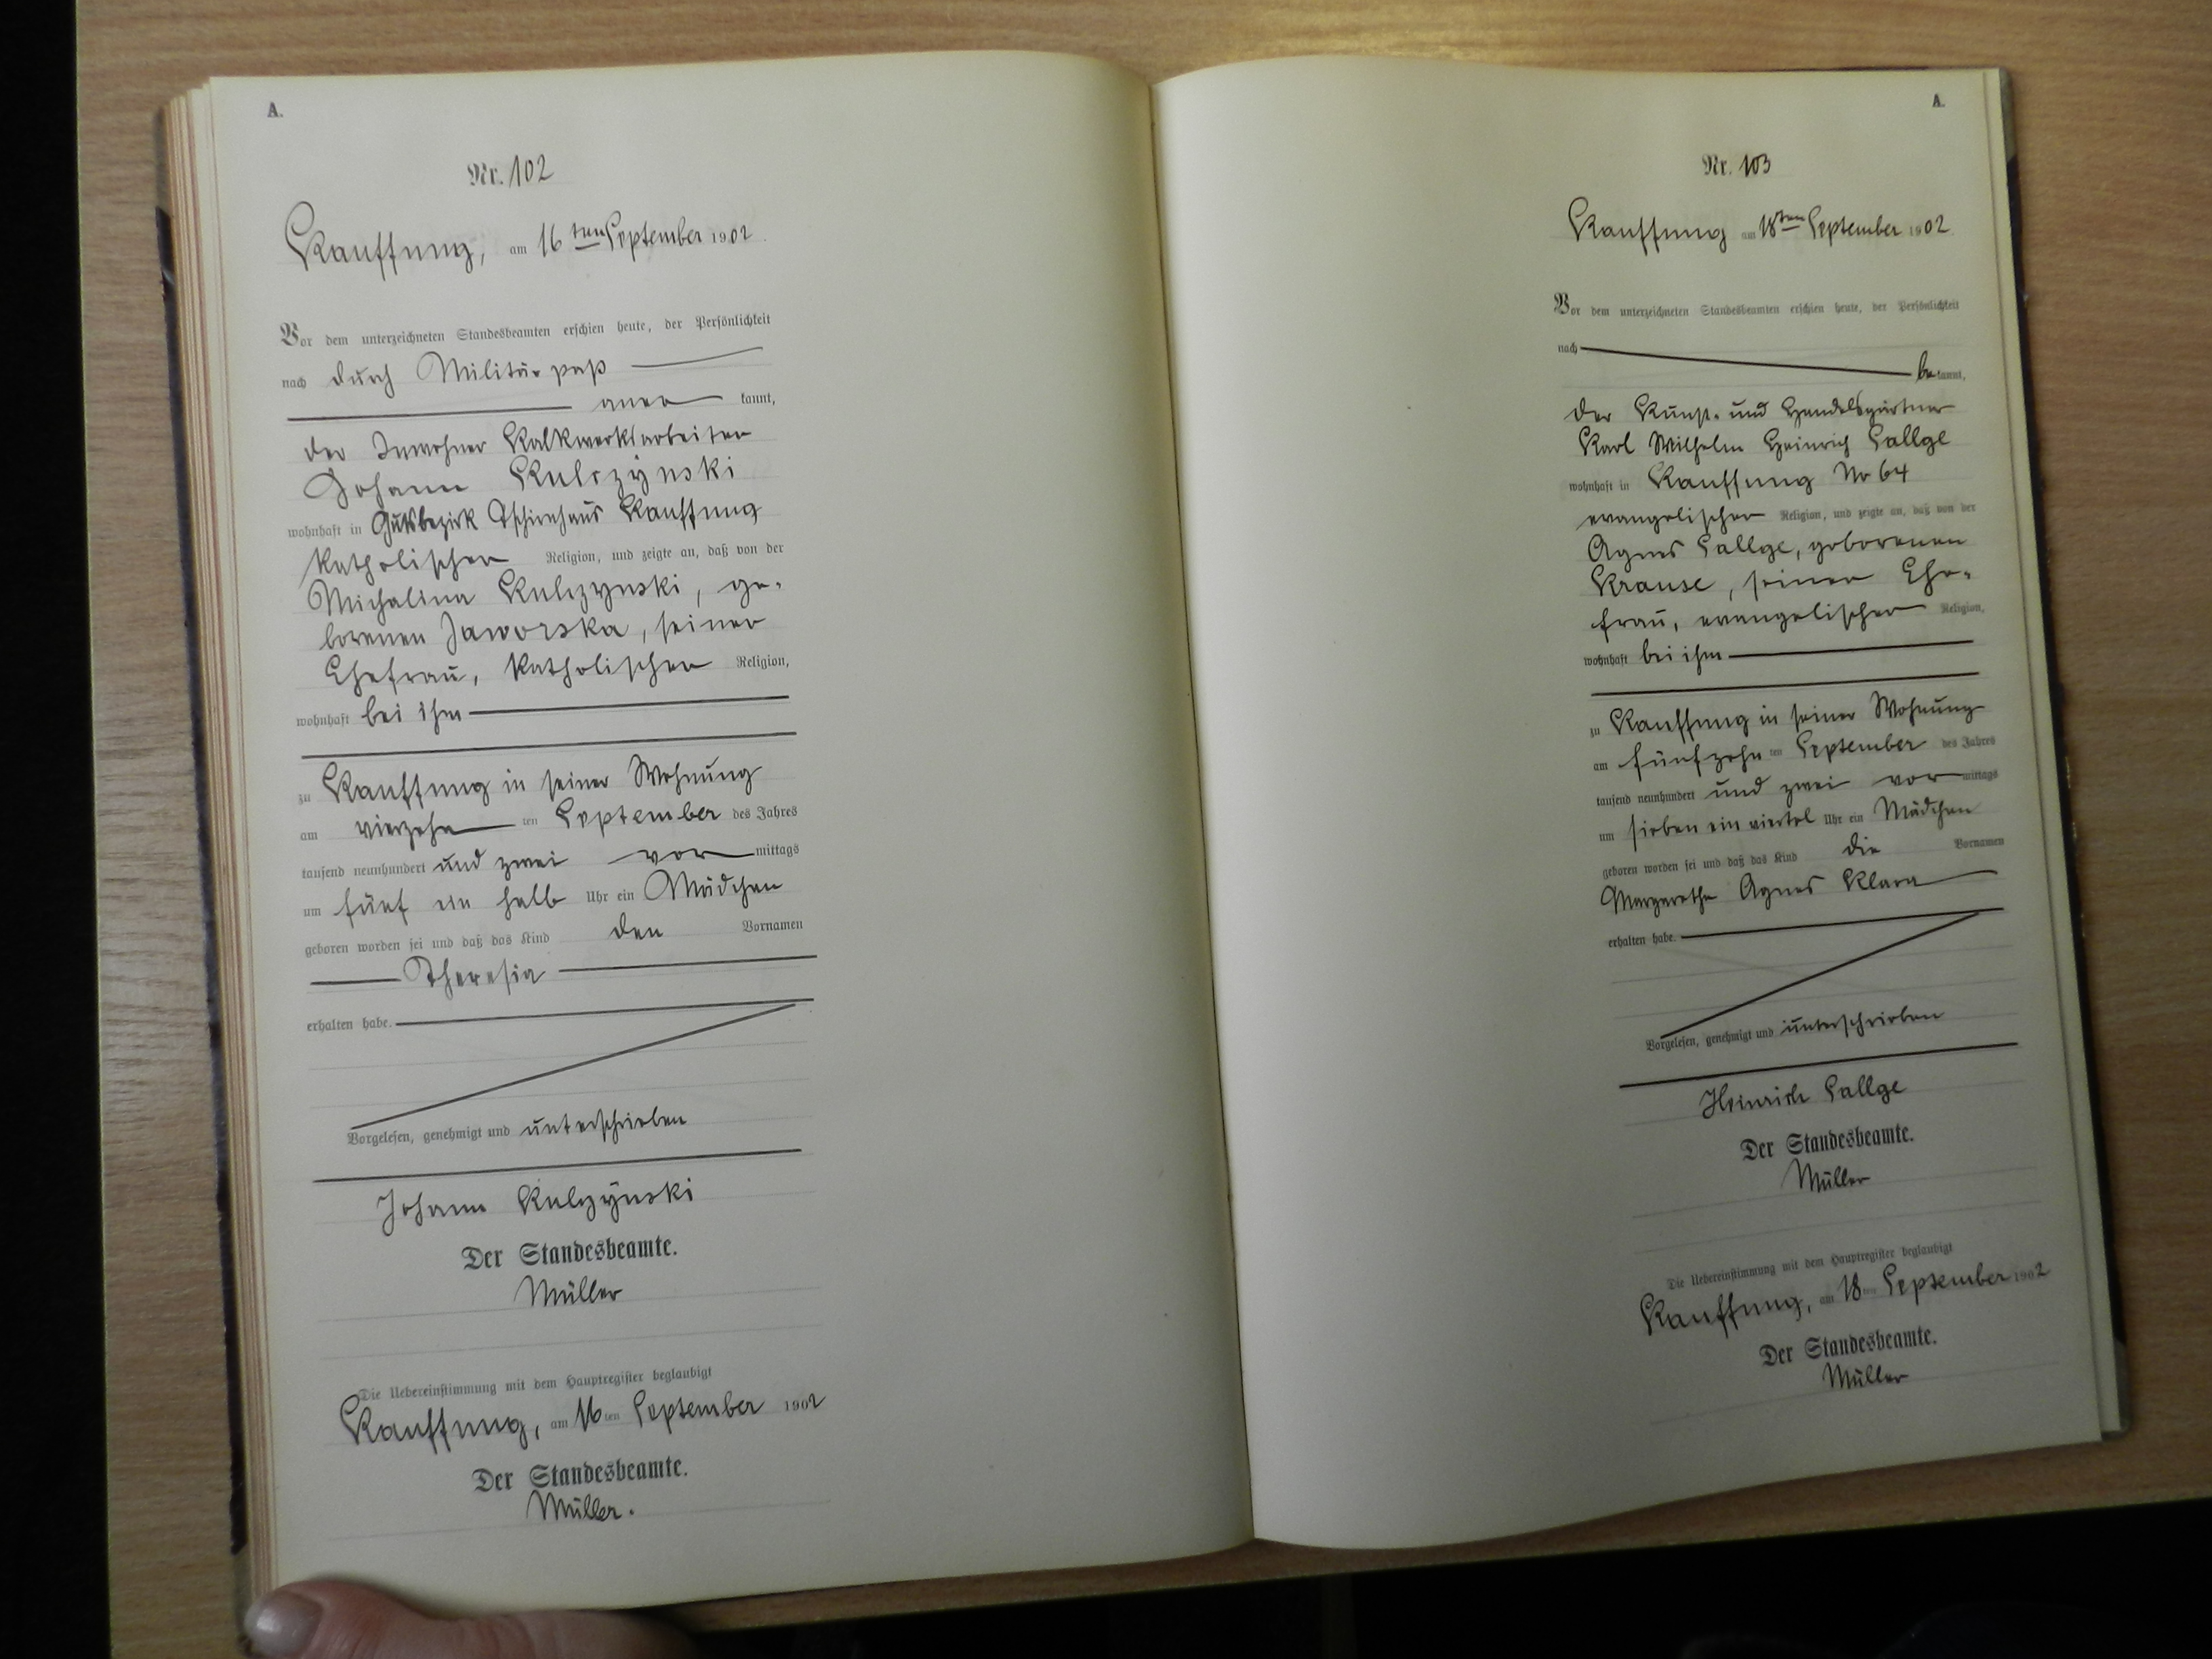 A.
Nr. 102
Kauffung, am 16ten September 1902.
Vor dem unterzeichneten Standesbeamten erschien heute, der Persönlichkeit
nach durch Militärpaß
aner kannt,
der Inwohner Kalkwerksarbeiter
Johann Kulczynski
wohnhaft in Gutsbezirk Tschirnhaus Kauffung
katholischer Religion, und zeigte an, daß von der
Michalina Kulczynski, ge-
borenen Jaworska, seiner
Ehefrau, katholischer Religion,
wohnhaft bei ihm
zu Kauffung in seiner Wohnung
am vierzehn ten September des Jahres
tausend neunhundert und zwei vor mittags
um fünf ein halb Uhr ein Mädchen
geboren worden sei und daß das Kind den Vornamen
Theresia
erhalten habe.
Vorgelesen, genehmigt und unterschrieben
Johann Kulczynski
Der Standesbeamte.
Müller
Die Uebereinstimmung mit dem Hauptregister beglaubigt
Kauffung, am 16ten September 1902
Der Standesbeamte.
Müller.
A.
Nr. 103
Kauffung am 18ten September 1902.
Vor dem unterzeichneten Standesbeamten erschien heute, der Persönlichkeit
nach
be kannt,
der Kunst- und Handelsgärtner
Karl Wilhelm Heinrich Sallge
wohnhaft in Kauffung No 64
evangelischer Religion, und zeigte an, daß von der
Agnes Sallge, geborenen
Krause, seiner Ehe-
frau, evangelischer Religion,
wohnhaft bei ihm
zu Kauffung in seiner Wohnung
am fünfzehn ten September des Jahres
tausend neunhundert und zwei vor mittags
um sieben ein viertel Uhr ein Mädchen
geboren worden sei und daß das Kind die Vornamen
Margarethe Agnes Klara
erhalten habe.
Vorgelesen, genehmigt und unterschrieben
Heinrich Sallge
Der Standesbeamte.
Müller
Die Uebereinstimmung mit dem Hauptregister beglaubigt
Kauffung, am 18ten September 1902
Der Standesbeamte.
Müller